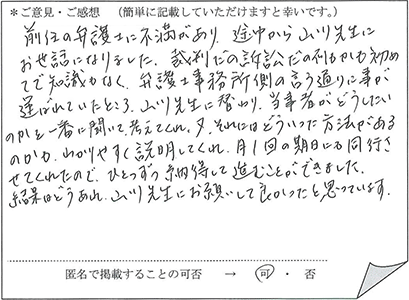 ＊ご意見・ご感想　（簡単に記載していただけますと幸いです。）
前任の弁護士に不満があり、途中から山川先生に
お世話になりました。裁判だの訴訟だの何もかも初め
てで知識もなく、弁護士事務所側の言う通りに事が
運ばれていたところ、山川先生に替わり、当事者がどうしたい
のかを一番に聞いて考えてくれ、又、それにはどういった方法がある
のか、わかりやすく説明してくれ、月1回の期日にも同行さ
せてくれたので、ひとつずつ納得して進むことができました。
結果はどうあれ、山川先生にお願いして良かったと思っています。
匿名で掲載することの可否　→　可・否